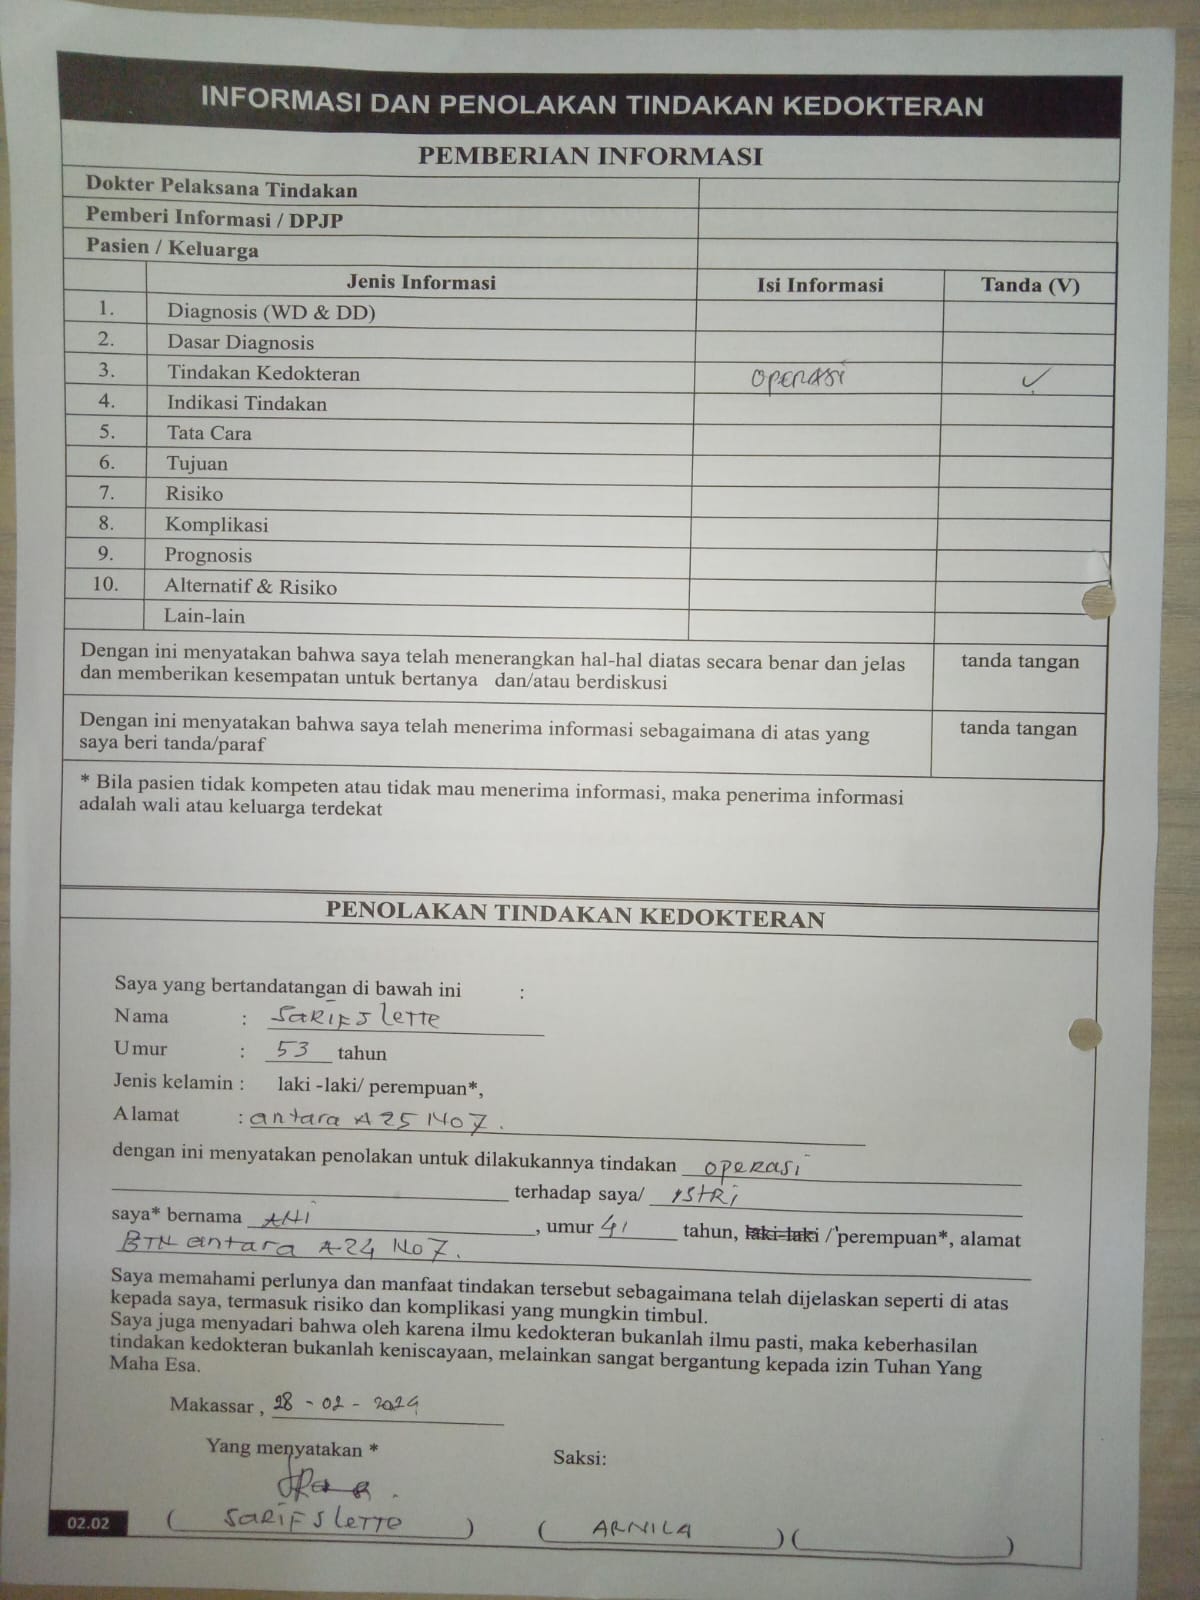 INFORMASI DAN PENOLAKAN TINDAKAN KEDOKTERAN
PEMBERIAN INFORMASI
Dokter Pelaksana Tindakan
Pemberi Informasi / DPJP
Pasien / Keluarga
Jenis Informasi Isi Informasi Tanda (V)
1. Diagnosis (WD & DD)
2. Dasar Diagnosis
3. Tindakan Kedokteran operasi ✓
4. Indikasi Tindakan
5. Tata Cara
6. Tujuan
7. Risiko
8. Komplikasi
9. Prognosis
10. Alternatif & Risiko
Lain-lain
Dengan ini menyatakan bahwa saya telah menerangkan hal-hal diatas secara benar dan jelas tanda tangan
dan memberikan kesempatan untuk bertanya dan/atau berdiskusi
Dengan ini menyatakan bahwa saya telah menerima informasi sebagaimana di atas yang tanda tangan
saya beri tanda/paraf
* Bila pasien tidak kompeten atau tidak mau menerima informasi, maka penerima informasi
adalah wali atau keluarga terdekat
PENOLAKAN TINDAKAN KEDOKTERAN
Saya yang bertandatangan di bawah ini :
Nama : SARIF S LETTE
Umur : 53 tahun
Jenis kelamin : laki -laki/ perempuan*,
Alamat : antara A25 No7.
dengan ini menyatakan penolakan untuk dilakukannya tindakan operasi
terhadap saya/ ISTRI
saya* bernama ANI, umur 41 tahun, laki-laki / perempuan*, alamat
BTN antara A24 No7.
Saya memahami perlunya dan manfaat tindakan tersebut sebagaimana telah dijelaskan seperti di atas
kepada saya, termasuk risiko dan komplikasi yang mungkin timbul.
Saya juga menyadari bahwa oleh karena ilmu kedokteran bukanlah ilmu pasti, maka keberhasilan
tindakan kedokteran bukanlah keniscayaan, melainkan sangat bergantung kepada izin Tuhan Yang
Maha Esa.
Makassar , 28 - 02 - 2024
Yang menyatakan * Saksi:
( SARIF S LETTE ) ( ARNILA ) ( )
02.02